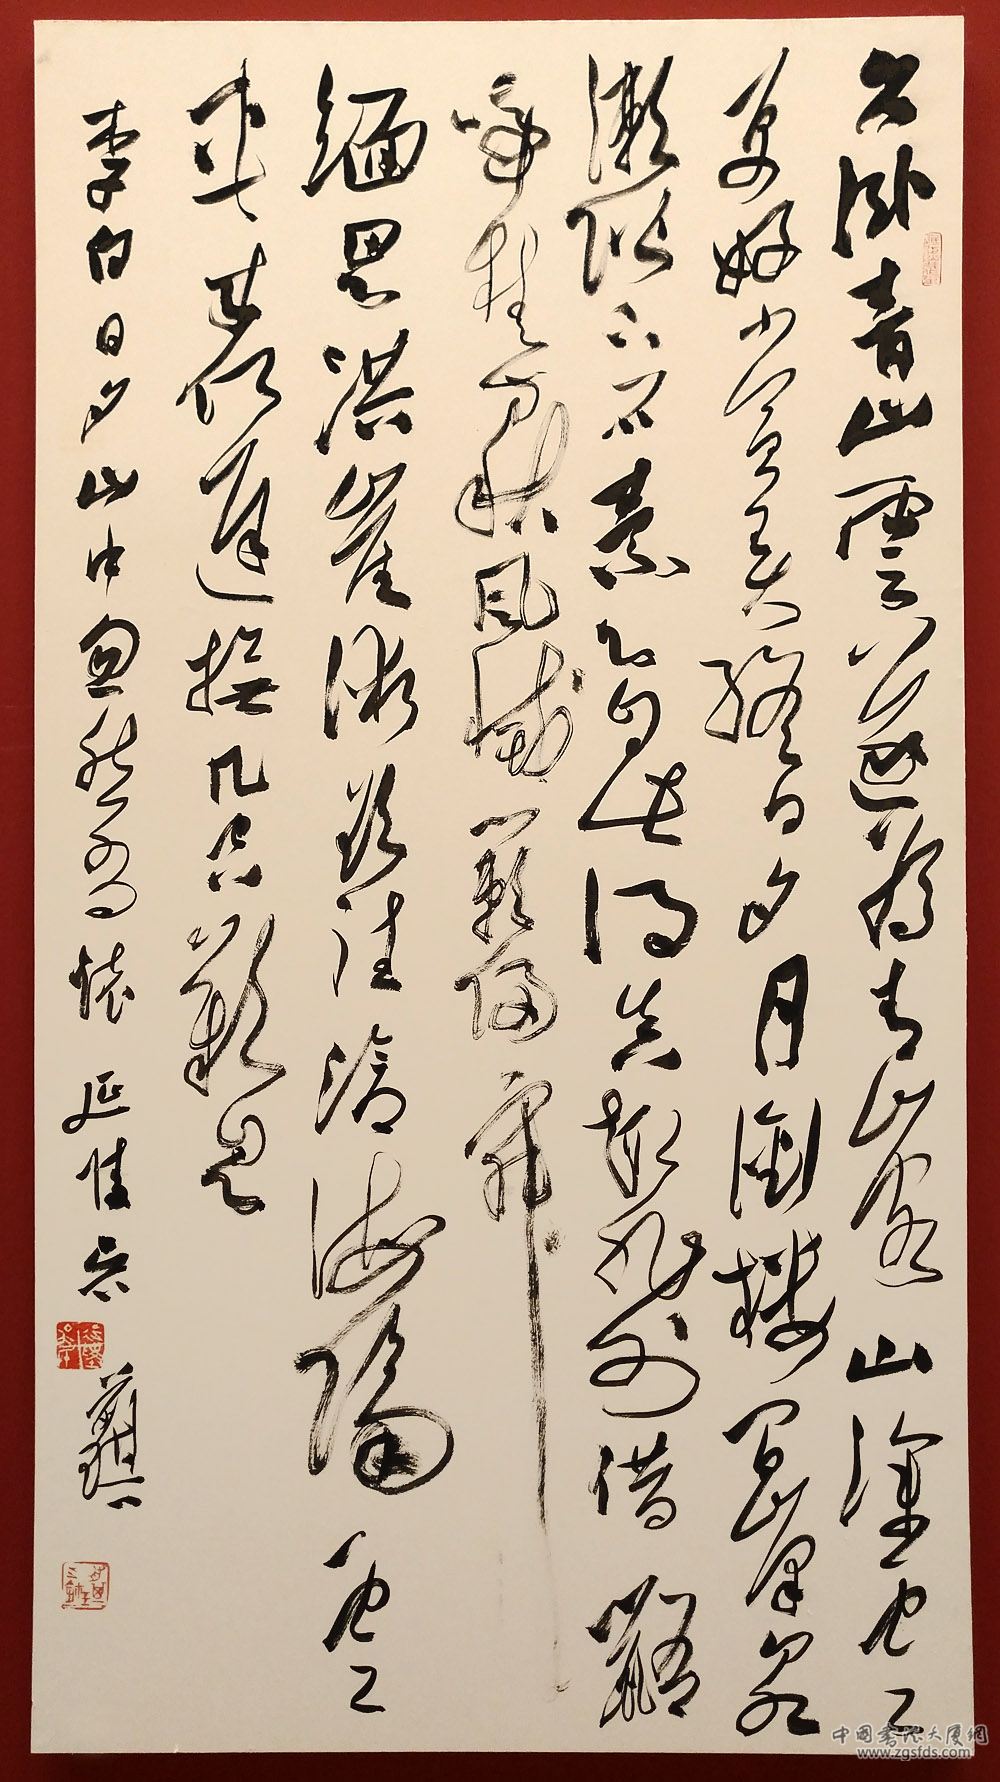 久臥青山雲遂為青山客山深雲
更好賞弄終日夕月銜樓間峰泉
漱階下石素心自此得真趣非外借鼯
啼桂方秋風滅籟歸寂
緬思洪崖術欲往滄海隔雲
車來何遲撫几空歎息
李白日夕山中忽然有懷 延佳
中國書法大廈網
www.zgsfds.com